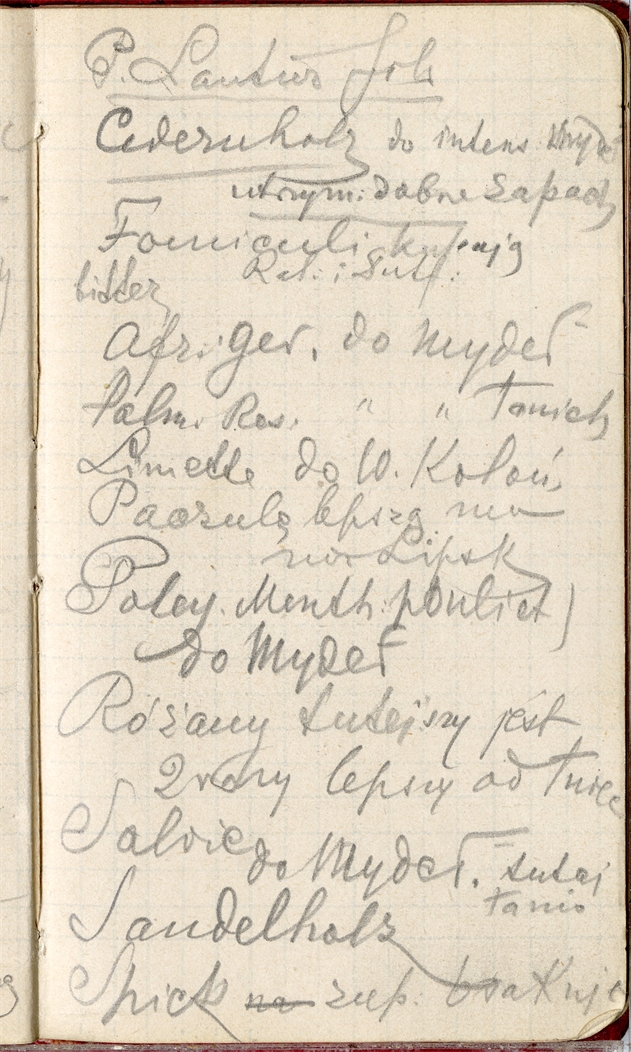 P. Lautus Joh
Cedernholz do intens Mydeł
utrzym: dobre zapach
Foeniculi kupują
bitter Rat. i Sut.
Afr. Ger. do Mydeł
Palm. Ros. " " tanich
Limette do W. Koloń.
Paczulę lepszą ma
Lipsk
Poley. Menth. puliet)
do Mydeł
Różany tutejszy jest
2 razy lepszy od
Salvie do Mydeł. tutaj
tanio
Sandelholz
Spick zup.